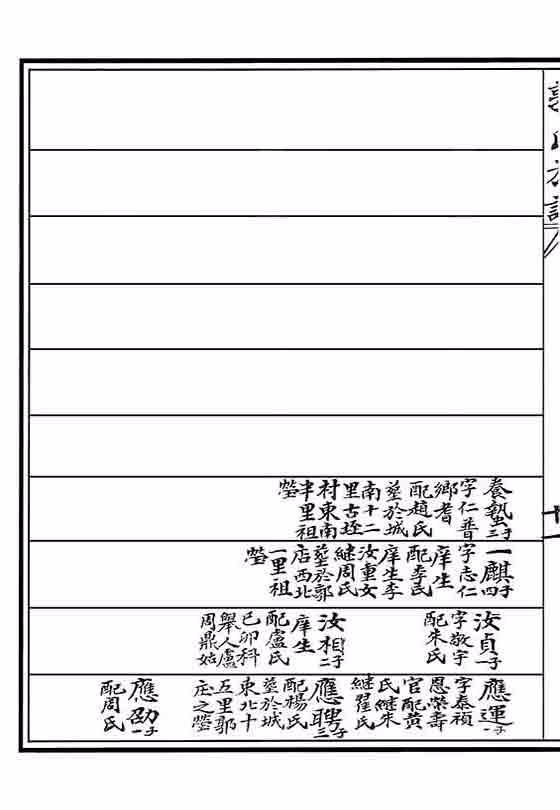 養蟄子三
字仁普
鄉耆
配趙氏
塟於城
南十二
里古垤
村東南
半里祖
塋
一麒子四
字志仁
庠生
配李氏
庠生李
汝重女
継周氏
塟於郭
店西北
一里祖
塋
汝貞子一
字敬宇
配朱氏
汝相子二
庠生
配盧氏
己卯科
舉人盧
周鼎姑
應運子一
字泰禎
恩榮壽
官配黄
氏継朱
継翟氏
應聘子三
配楊氏
塟於城
東北十
五里郭
庄之塋
應劭子一
配周氏